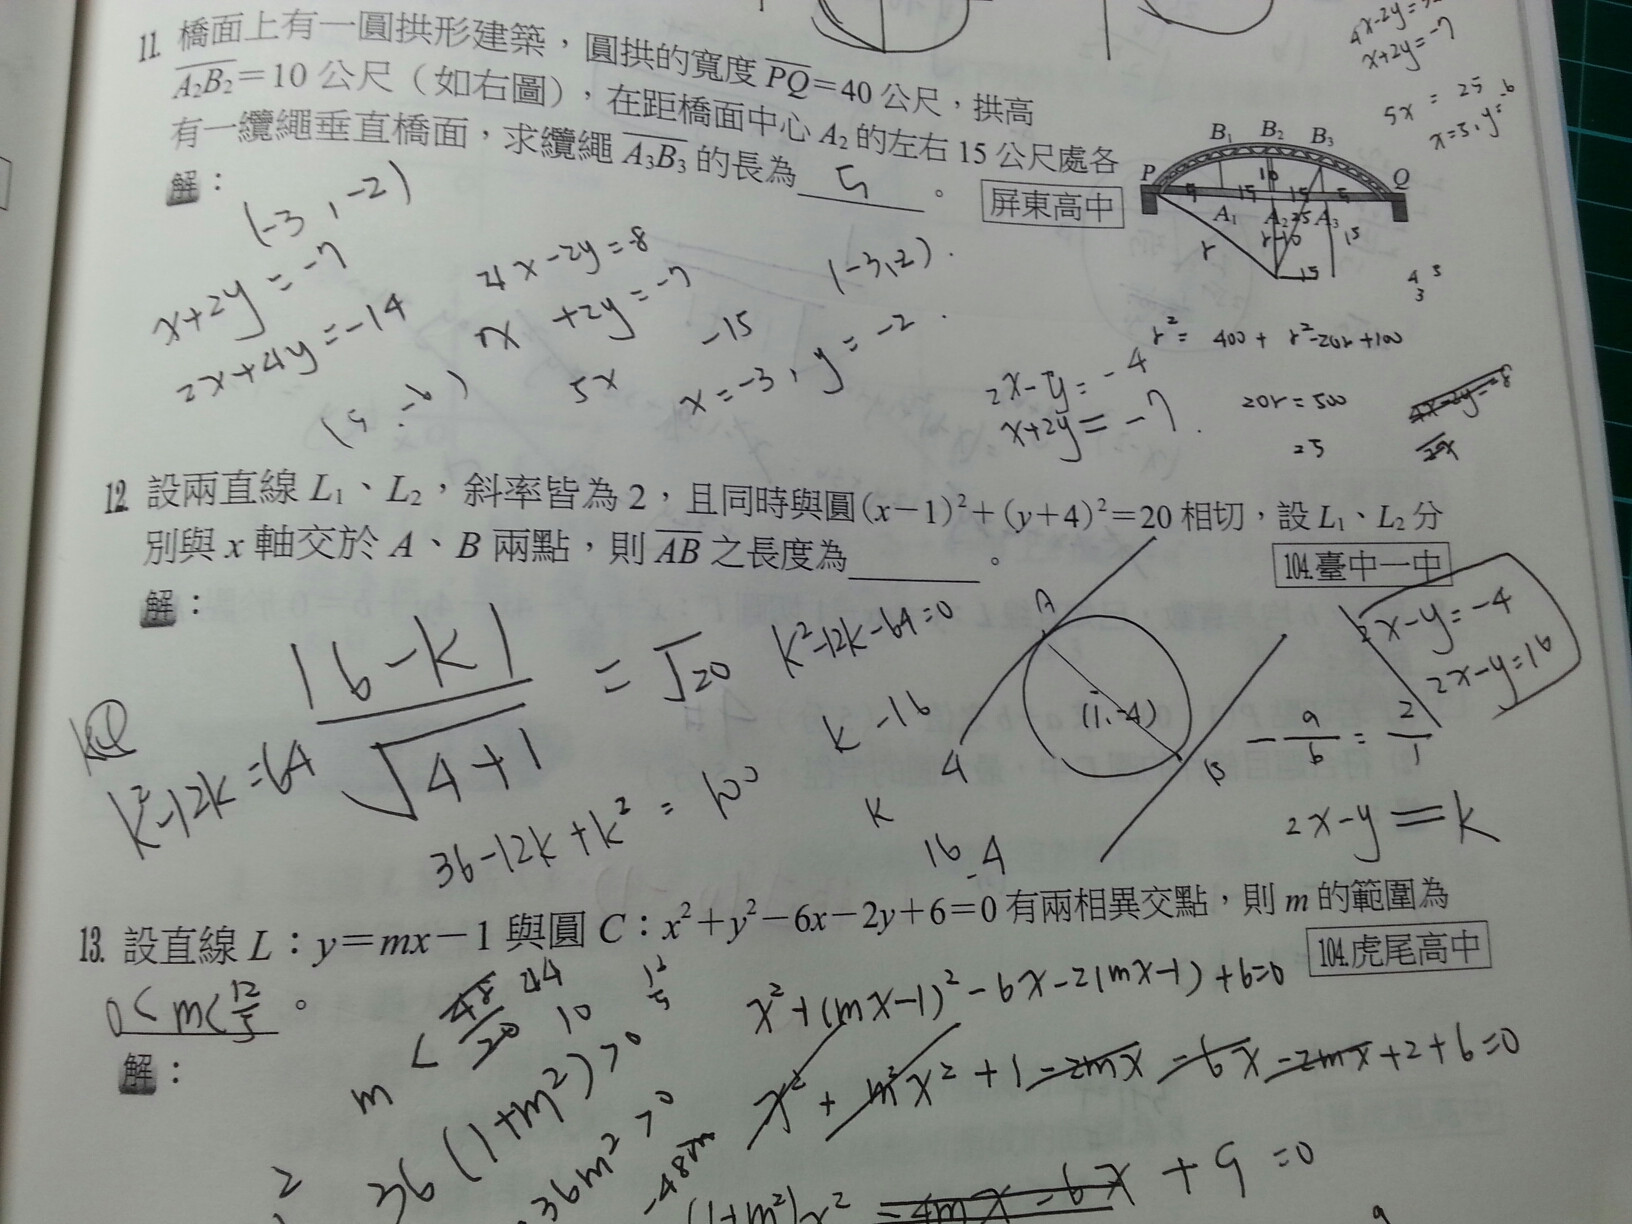 4x-2y=
x+2y=-7
5x = 25
x=5, y=-6
11. 橋面上有一圓拱形建築，圓拱的寬度PQ=40公尺，拱高
A₂B₂=10公尺（如右圖），在距橋面中心A₂的左右15公尺處各
有一纜繩垂直橋面，求纜繩A₃B₃的長為 5 。
屏東高中
解：
B₁ B₂ B₃
P Q
10
5 15 15 5
A₁ A₂ 25 A₃
r r-10 15
15
(-3, -2)
x+2y=-7
2x+4y=-14
4x-2y=-8
x+2y=-7
-15
5x
x=-3, y=-2.
(-3,2).
(5, -6)
2x-y=-4
x+2y=-7.
r²= 400+ r²-20r+100
20r=500
25
4x-2y=8
12. 設兩直線L₁、L₂，斜率皆為2，且同時與圓(x-1)²+(y+4)²=20相切，設L₁、L₂分
別與x軸交於A、B兩點，則AB之長度為 。
104.臺中一中
解：
|6-k|
√4+1
=√20
k²-12k-64=0
k²-12k=64
36-12k+k²=100
k -16
k 4
16 -4
A
(1,-4)
B
2x-y=-4
2x-y=16
-a/b=2/1
2x-y=k
13. 設直線L：y=mx-1與圓C：x²+y²-6x-2y+6=0有兩相異交點，則m的範圍為
0<m<12/5 。
104.虎尾高中
解：
m < 48/20 24 10 12/5
x²+(mx-1)²-6x-2(mx-1)+6=0
x²+m²x²+1-2mx-6x-2mx+2+6=0
36(1+m²)>0
36m²>0
-48m
(1+m²)x²-4mx-6x+9=0